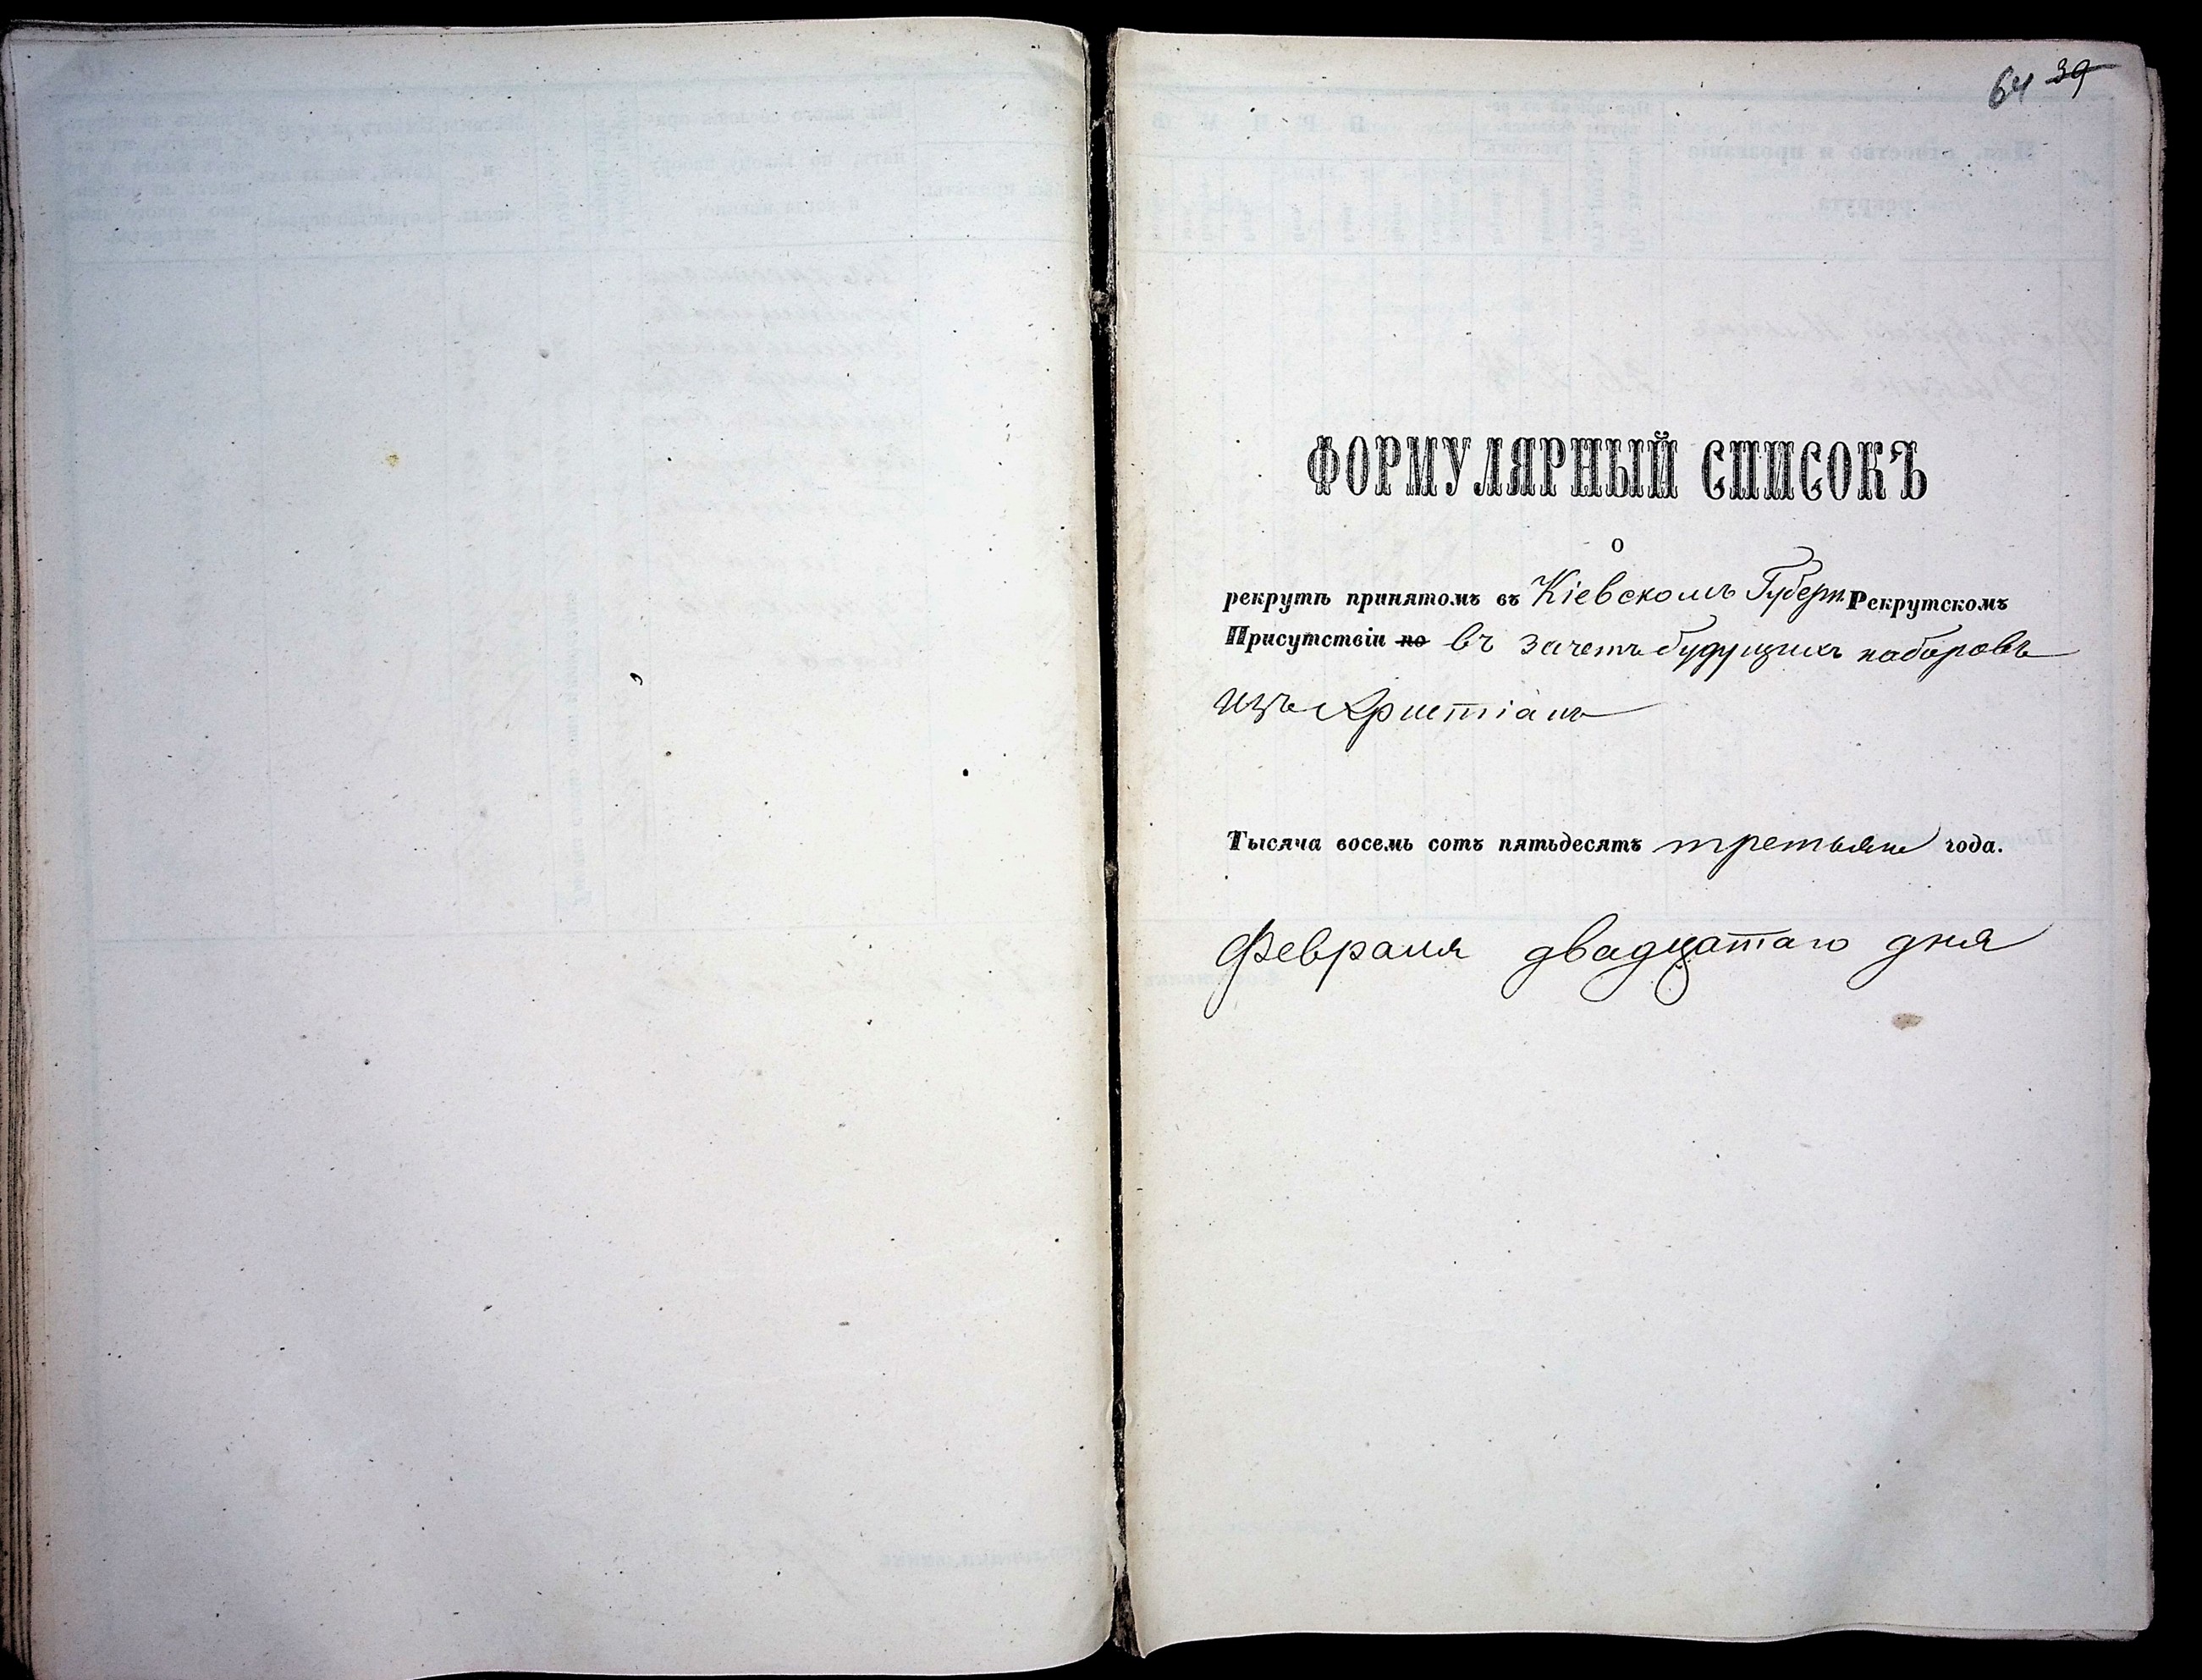 64 39
ФОРМУЛЯРНЫЙ СПИСОКЪ
о
рекрутѣ принятомъ въ Кіевскомъ Губерн. Рекрутскомъ
Присутствіи по въ зачетъ будущихъ наборовъ
изъ Христіанъ
Тысяча восемь сотъ пятьдесятъ третьяго года.
Февраля двадцатаго дня